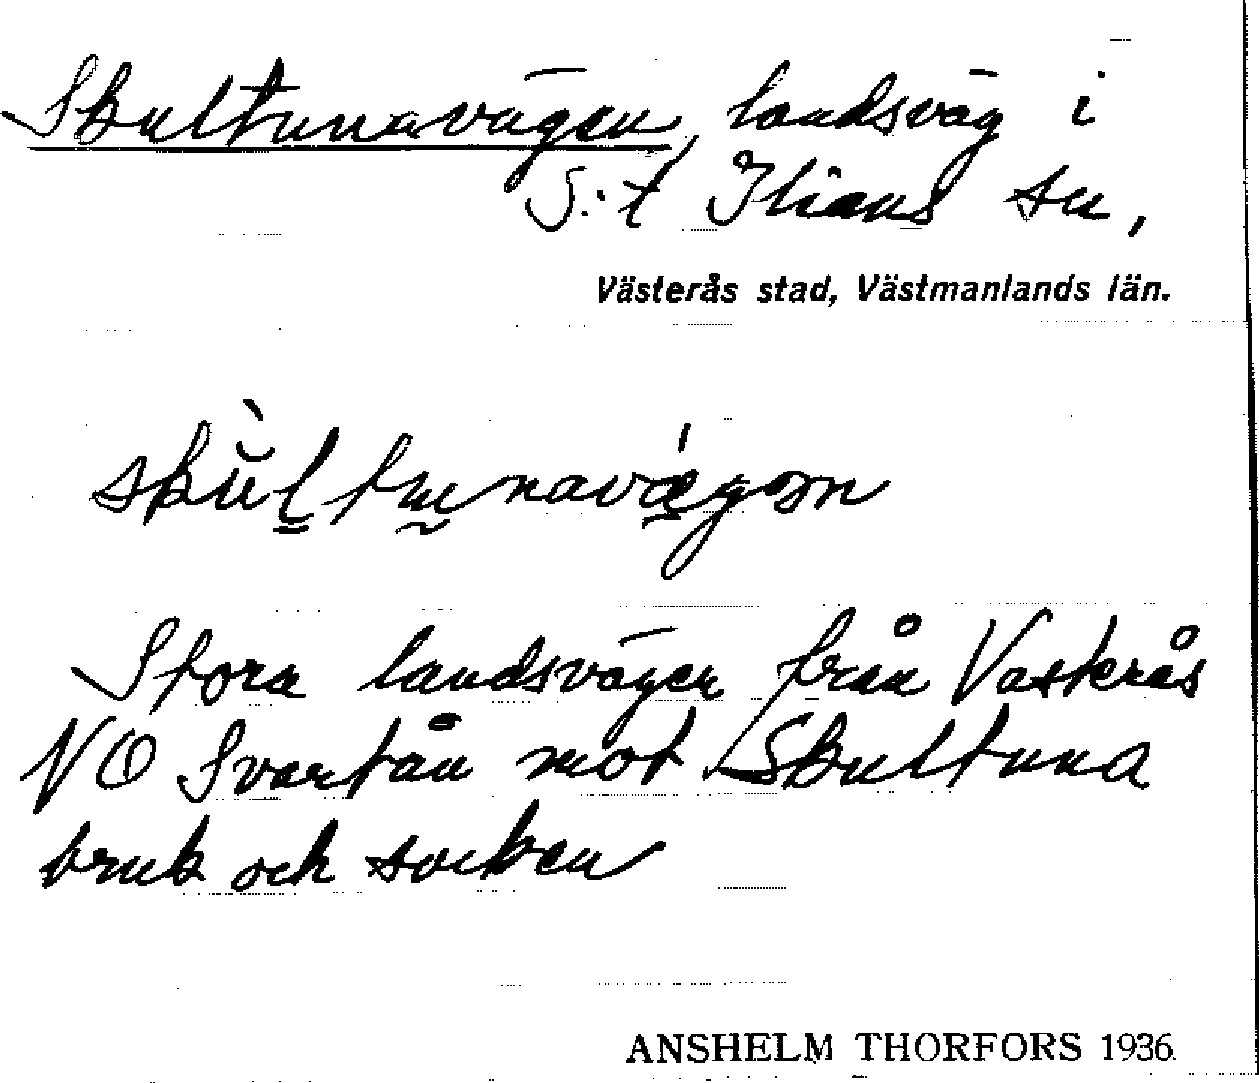 Skultunavägen, landsväg i
S:t Ilians sn,
Västerås stad, Västmanlands län.
skùltunavǽgən
Stora landsvägen från Västerås
NO Svartån mot Skultuna
bruk och socken
ANSHELM THORFORS 1936.